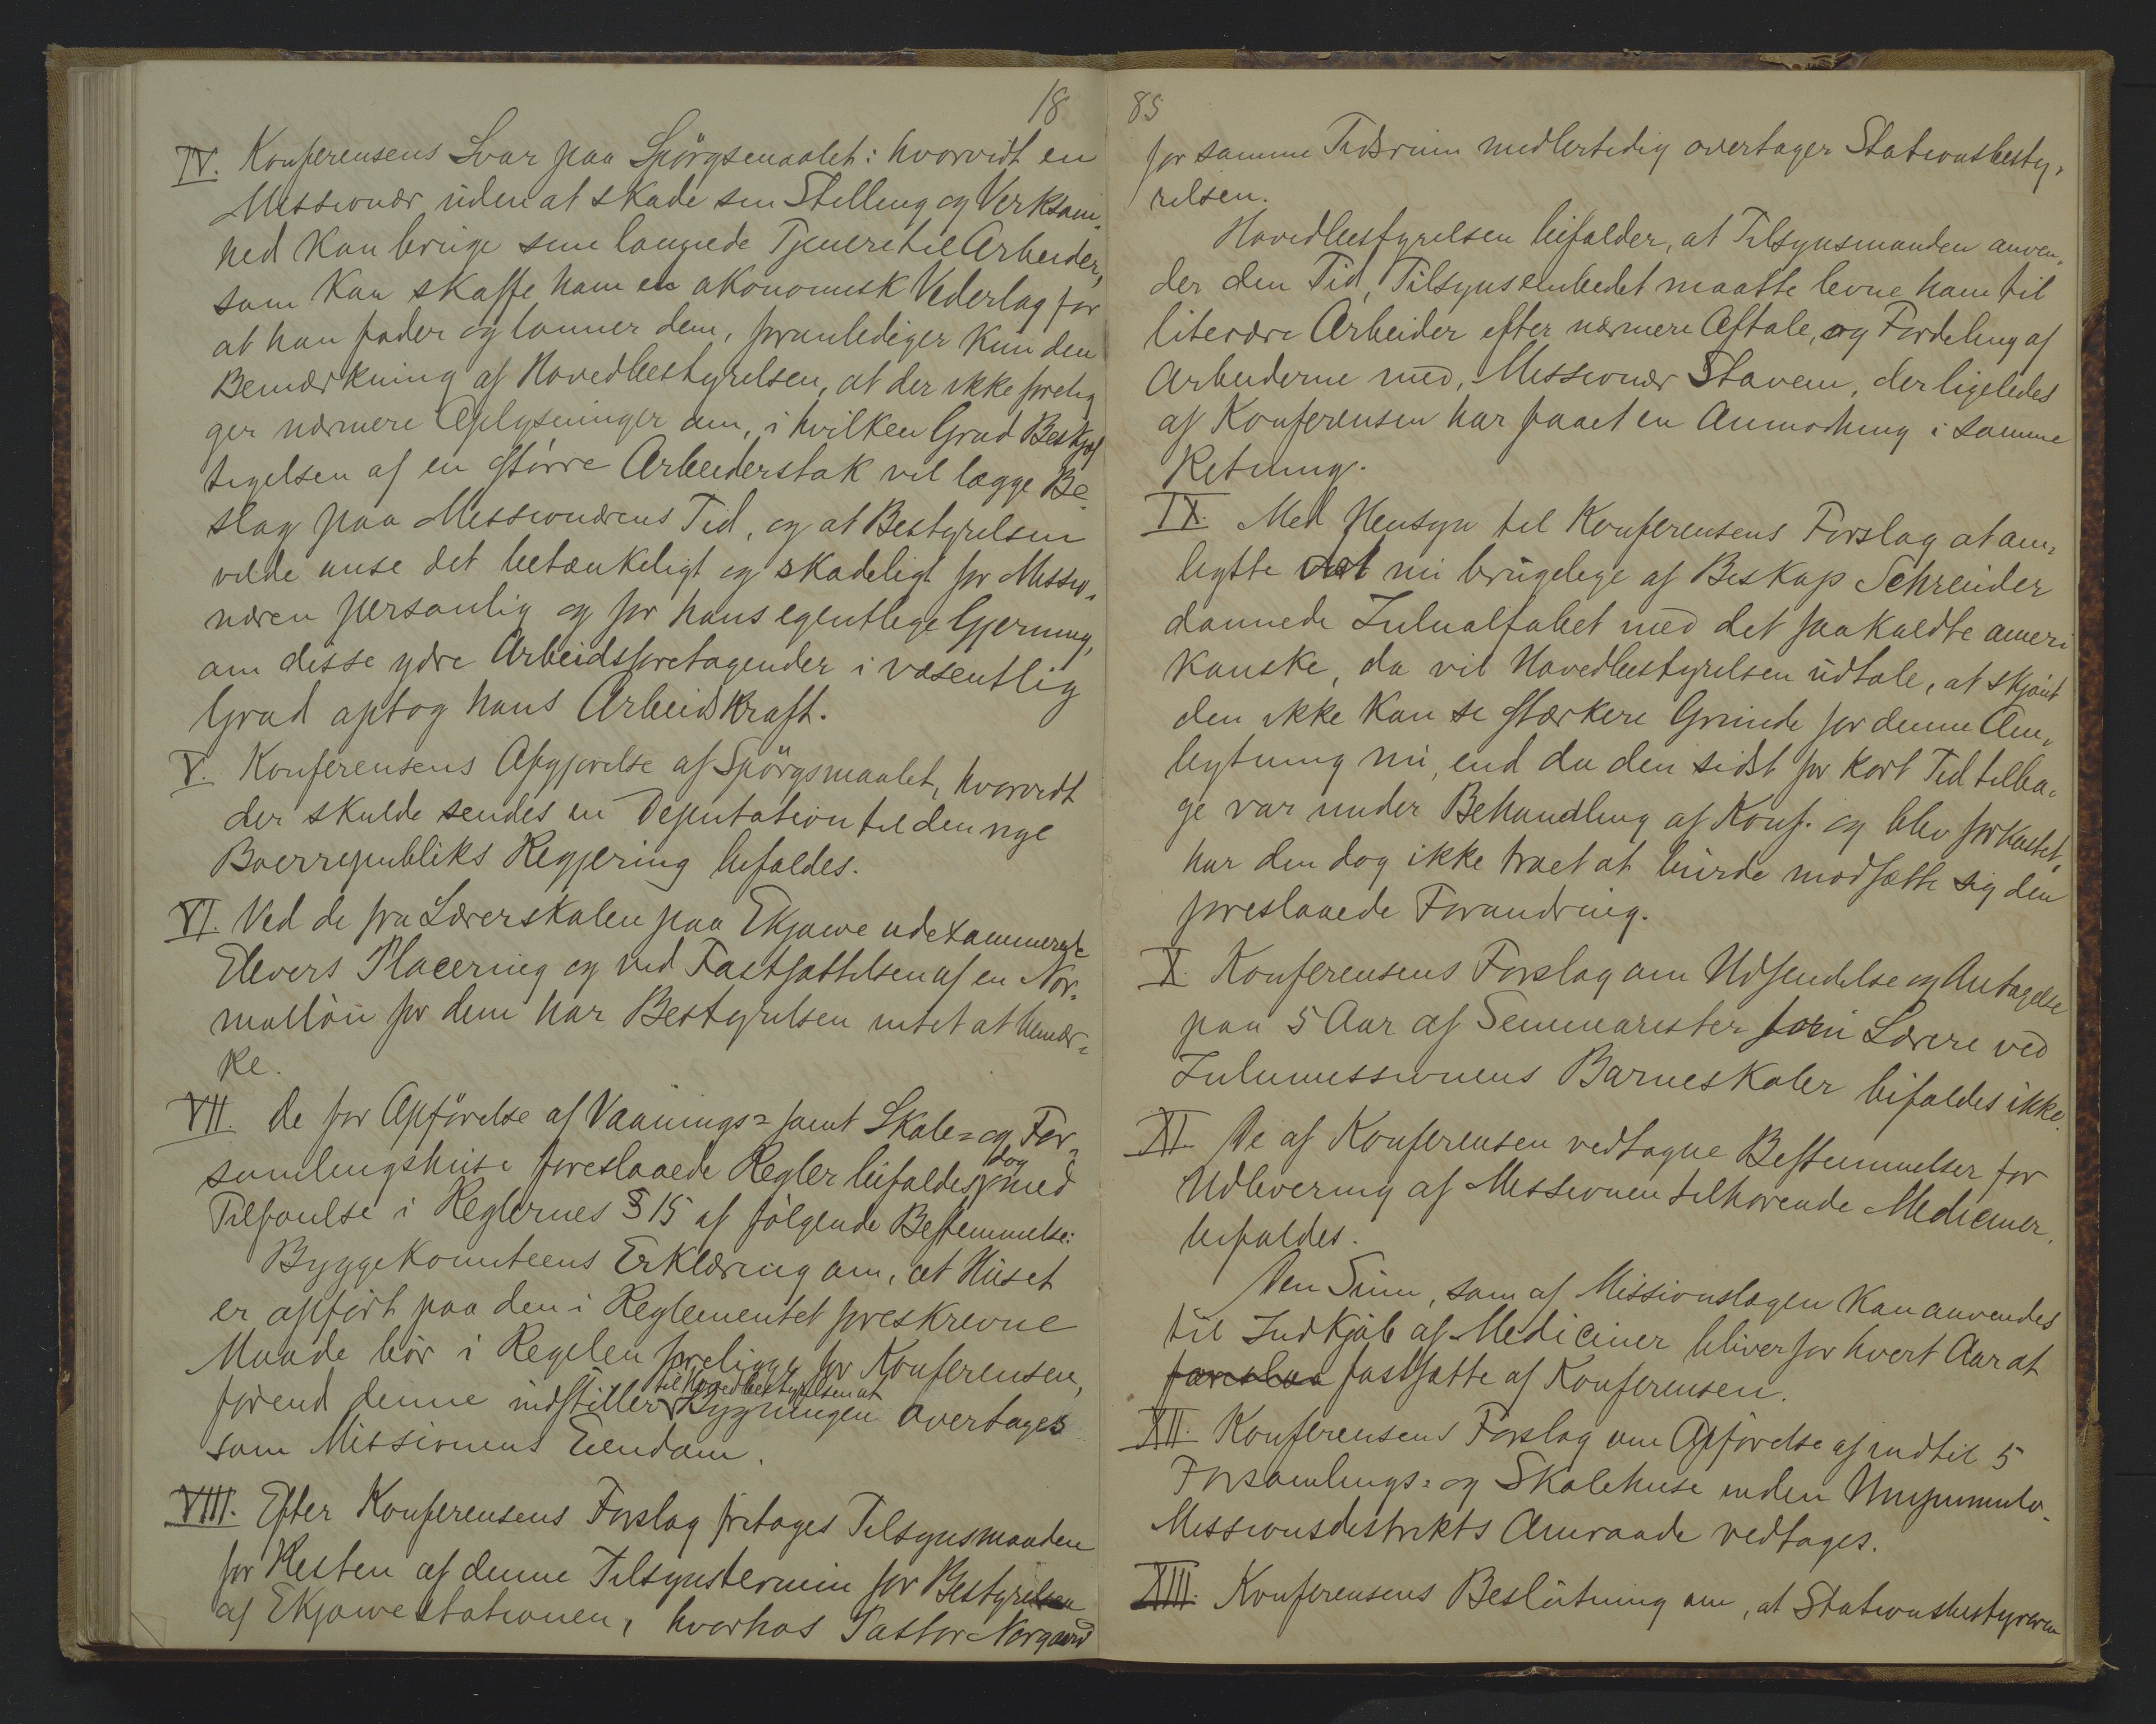 18
IV. Konferensens Svar paa Spörgsmaalet: hvorvidt en
Missionær uden at skade sin Stilling og Verksom-
hed kan bruge sine lønnede Tjenere til Arbeider,
som kan skaffe ham en økonomisk Vederlag for
at han føder og lønner dem, foranlediger kun den
Bemærkning af Hovedbestyrelsen, at der ikke forelig
ger nærmere Oplysninger om, i hvilken Grad Beskjæf
tigelsen af en större Arbeiderstok vil lægge Be-
slag paa Missionærens Tid, og at Bestyrelsen
vilde anse det betænkeligt og skadeligt for Missio-
næren personlig og for hans egentlige Gjerning,
om disse ydre Arbeidsforetagender i væsentlig
Grad optog hans Arbeidskraft.
V. Konferensens Afgjørelse af Spörgsmaalet, hvorvidt
der skulde sendes en Deputation til den nye
Boerrepubliks Regjering bifaldes.
VI. Ved de fra Lærerskolen paa Ekjowe udexaminerede
Elevers Placering og ved Fastsættelsen af en Nor-
mallön for dem har Bestyrelsen intet at bemær-
ke.
VII. De for Opförelse af Vaanings- samt Skole- og For-
samlingshuse foreslaaede Regler bifaldes, dog med
Tilføielse i Reglernes § 15 af fölgende Bestemmelse:
Byggekomiteens Erklæring om, at Huset
er opfört paa den i Reglementet foreskrevne
Maade bör i Regelen foreligge for Konferensen,
förend denne indstiller til Hovedbestyrelsen at Bygningen overtages
som Missionens Eiendom.
VIII. Efter Konferensens Forslag fritages Tilsynsmanden
for Resten af denne Tilsynstermin for Bestyrelsen
af Ekjowestationen, hvorhos Pastor Norgaard
85
for samme Tidsrum midlertidig overtager Stationsbesty-
relsen.
Hovedbestyrelsen bifalder, at Tilsynsmanden anven-
der den Tid, Tilsynsembedet maatte levne ham til
literære Arbeider efter nærmere Aftale, og Fordeling af
Arbeiderne med, Missionær Stavem, der ligeledes
af Konferensen har faaet en Anmodning i samme
Retning.
IX. Med Hensyn til Konferensens Forslag at om-
bytte det nu brugelige af Biskop Schreuder
dannede Zulualfabet med det saakaldte ameri
kanske, da vil Hovedbestyrelsen udtale, at skjönt
den ikke kan se stærkere Grunde for denne Om-
bytning nu, end da den sidst for kort Tid tilba-
ge var under Behandling af Konf. og blev forkastet,
har den dog ikke troet at burde modsætte sig den
foreslaaede Forandring.
X. Konferensens Forslag om Udsendelse og Antagelse
paa 5 Aar af Seminarister som Lærere ved
Zulumissionens Barneskoler bifaldes ikke.
XI. De af Konferensen vedtagne Bestemmelser for
Udlevering af Missionen tilhørende Mediciner,
bifaldes.
Den Sum, som af Missionslægen kan anvendes
til Indkjöb af Mediciner bliver for hvert Aar at
foreslaa fastsætte af Konferensen.
XII. Konferensens Forslag om Opförelse af indtil 5
Forsamlings- og Skolehuse inden Umpumulo-
Missionsdistrikts Omraade vedtages.
XIII. Konferensens Beslutning om, at Stationsbestyreren